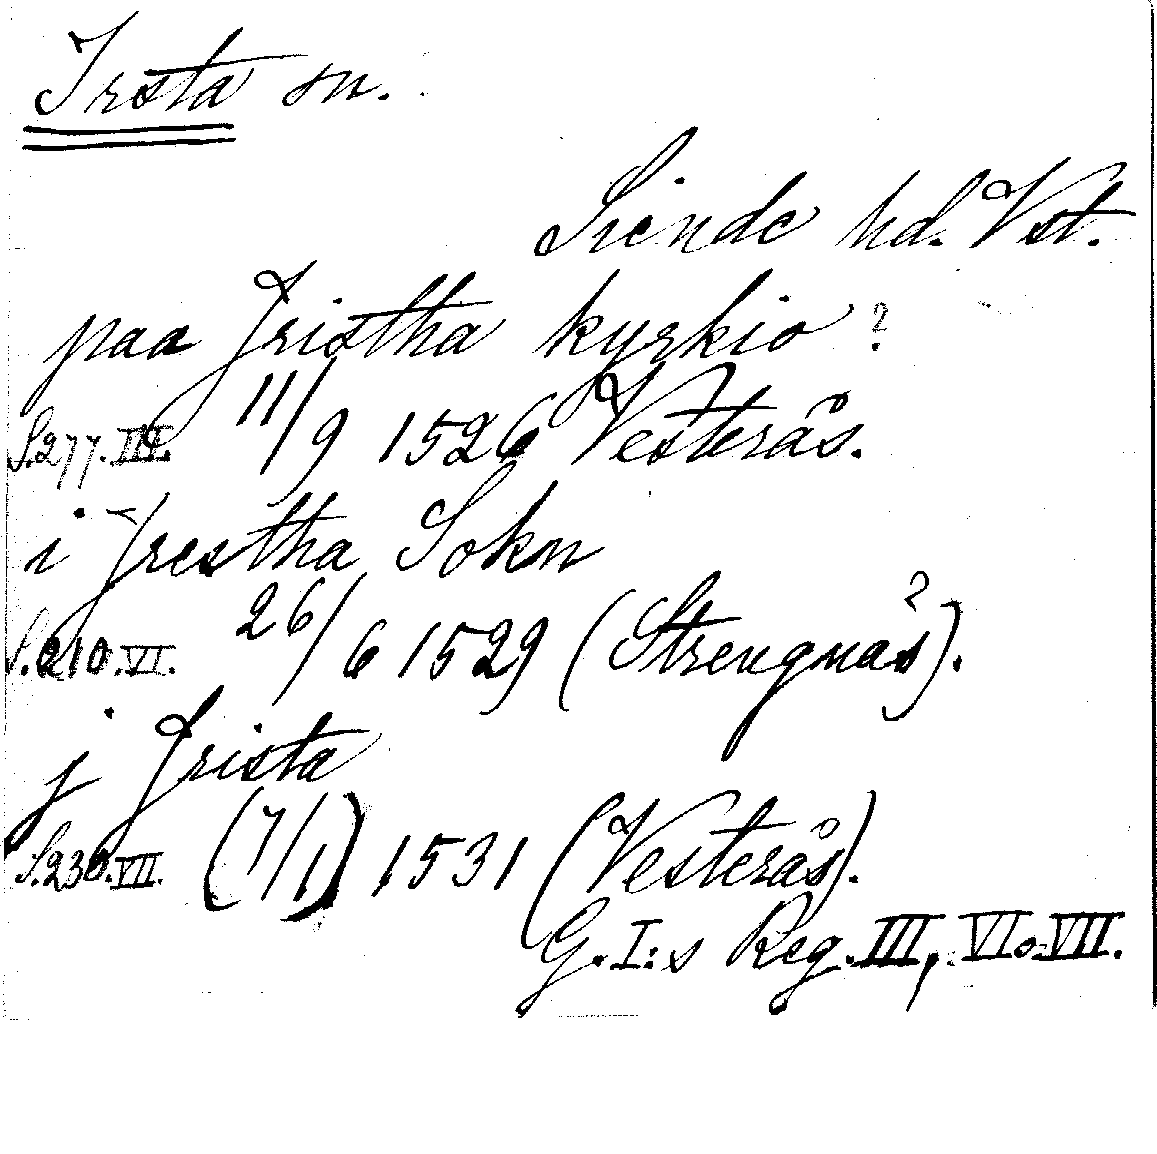 Irsta sn.
Siende hd. Vst.
paa Jristha kyrkio ?
S.277.III. 11/9 1526 Vesterås.
i Jrestha Sokn
S.210.VI. 26/6 1529 (Strengnäs).
j Jrista
S.230.VII. (7/1) 1531 (Vesterås).
G.I:s Reg. III, VI o VII.